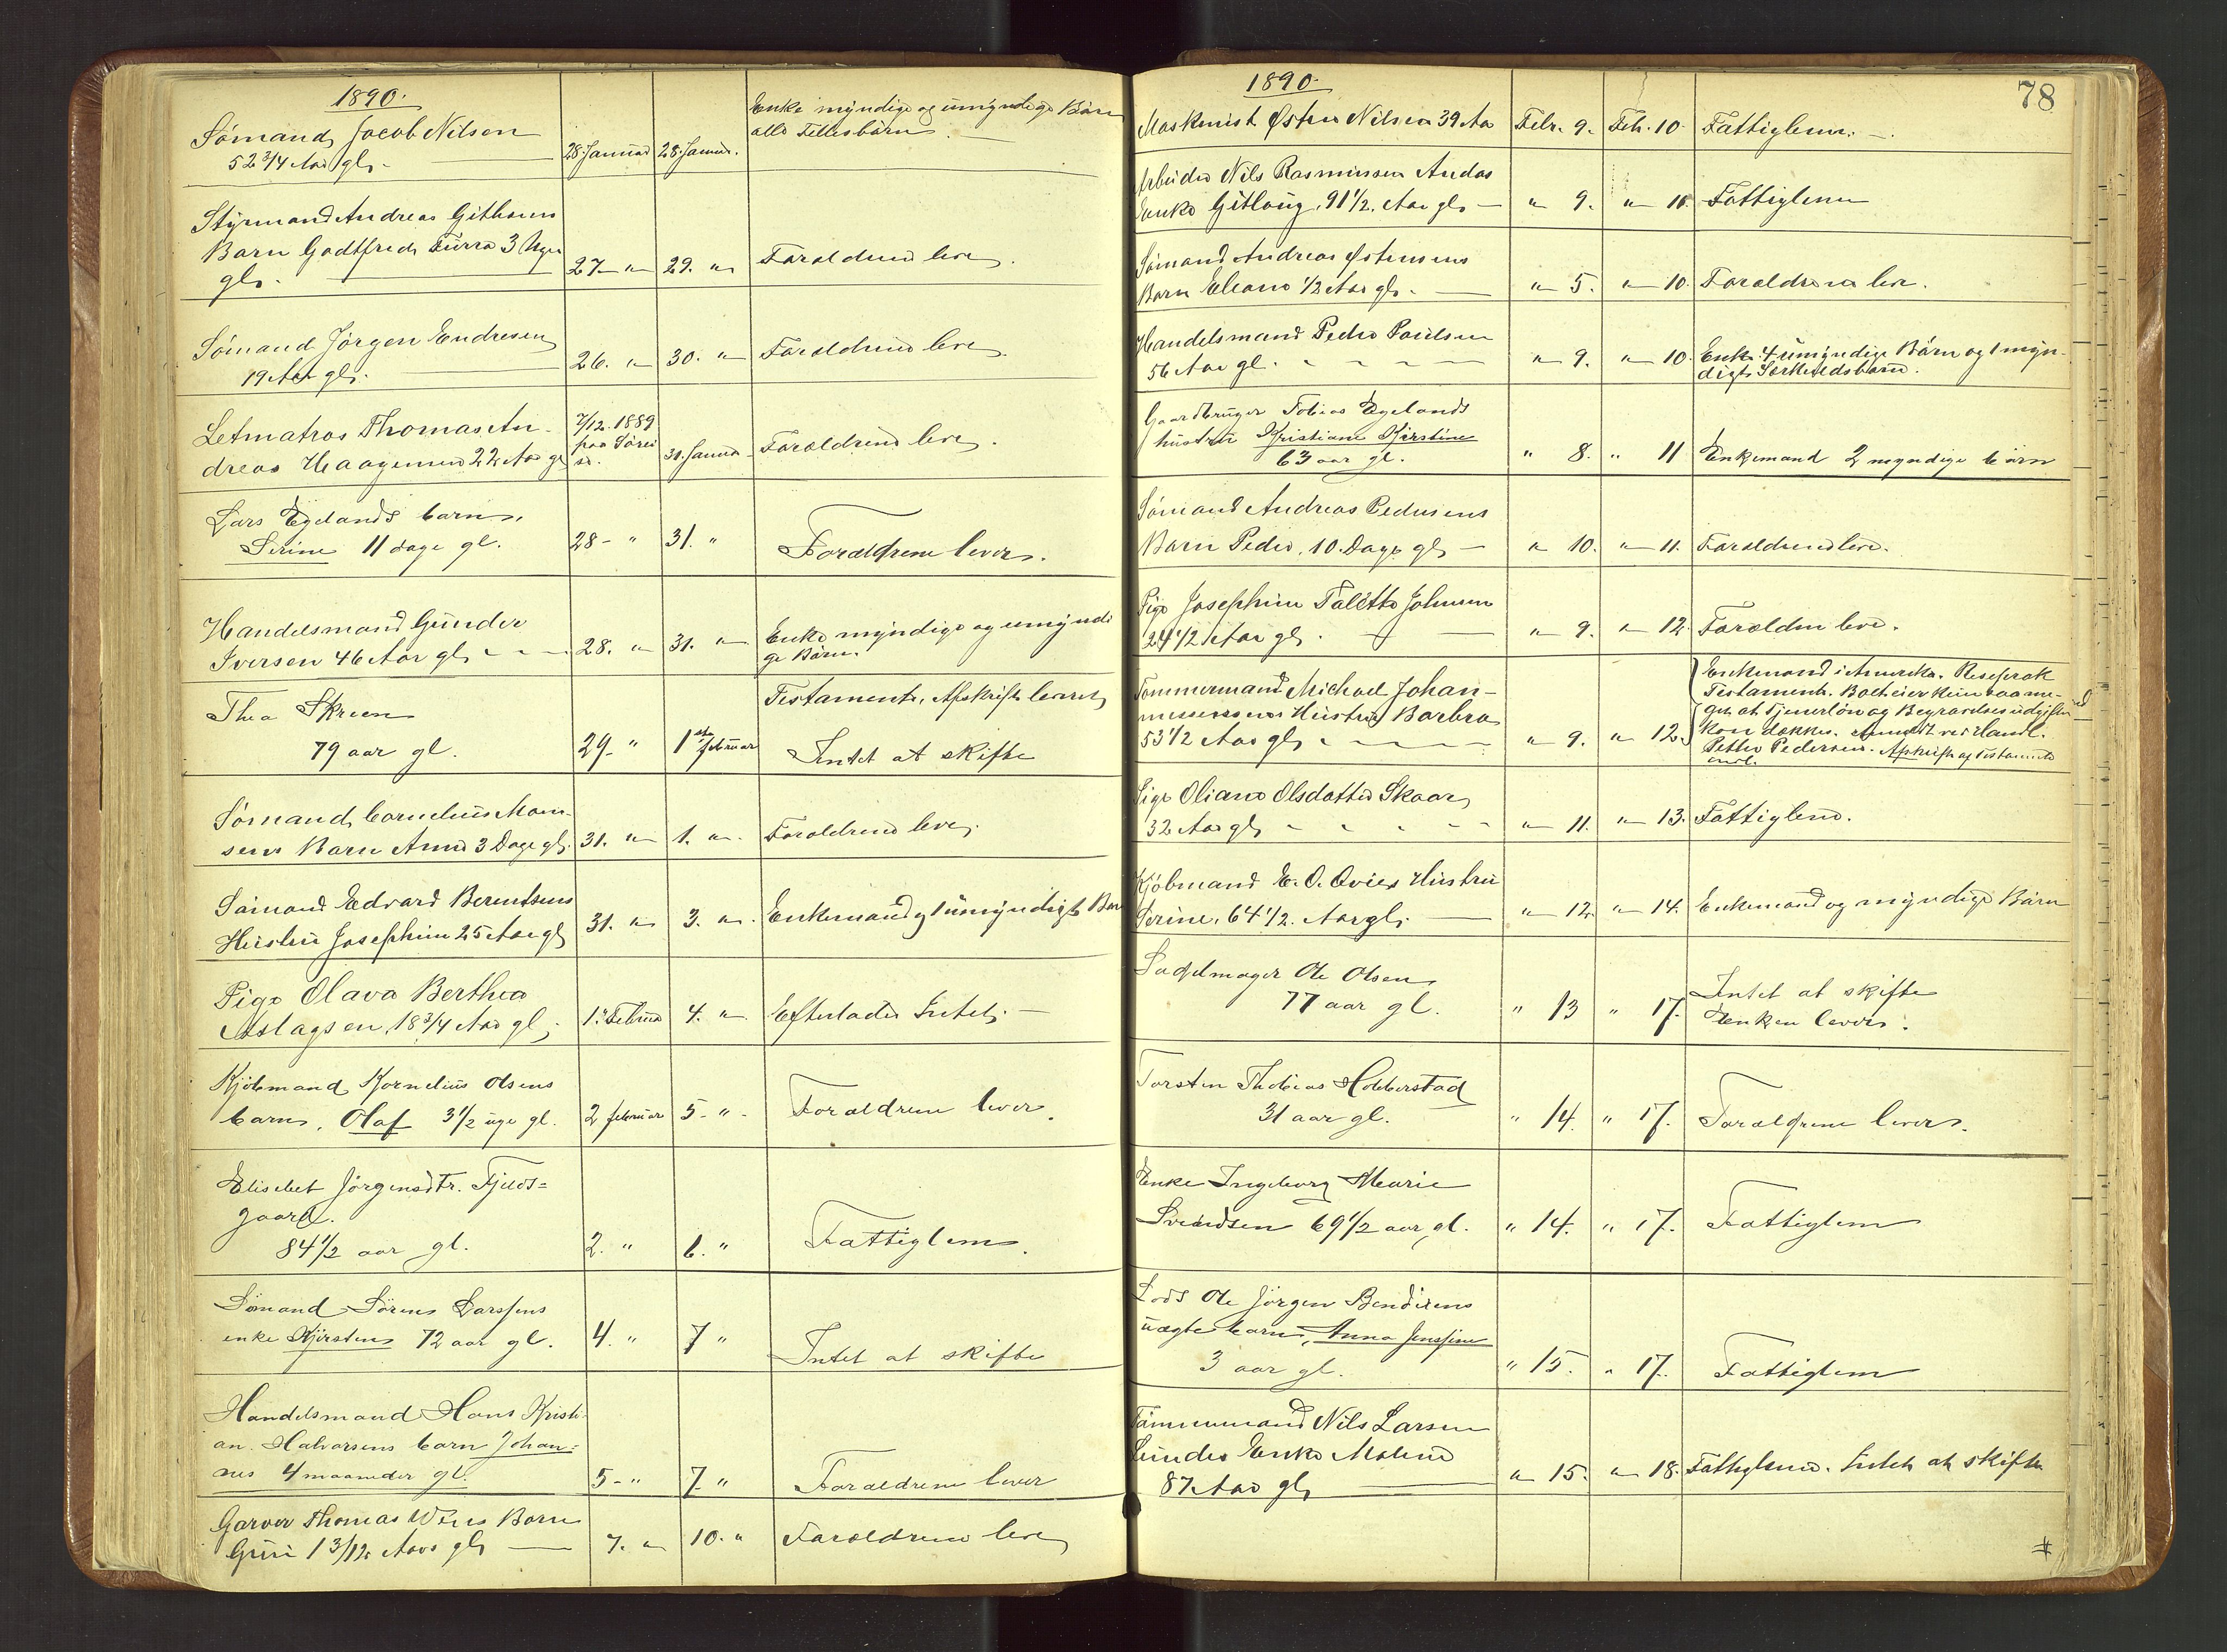 1890.
Sømand Jacob Nilsen
52 3/4 Aar gl. 28. Januar 28. Januar.
Enke myndige og umyndige Børn
alle Fellesbørn.
Styrmand Andreas Githsens
Barn Godtfred 3 Uger
gl. 27 " 29. " Forældrene leve.
Sømand Jørgen Endresen
19 Aar gl. 26. " 30. " Forældrene leve.
Letmatros Thomas An-
dreas Haagensen 22 Aar gl
7/12. 1889
paa Sørei
se. 31. Januar Forældrene leve.
Lars Egelands barn,
Serine 11 dage gl. 28- " 31. " Forældrene lever.
Handelsmand Gunder
Iversen 46 Aar gl. 28. " 31. " Enke myndige og umyndi
ge Børn.
Thea Skreen
79 aar gl. 29- " 1ste februar
Testament, Afskrift leveret
Intet at skifte
Sømand Cornelius Mon-
sens Barn Anna 3 Dage gl. 31. " 1. " Forældrene leve.
Sømand Edvard Berentsens
Hustru Josephine 25 Aar gl 31. " 3. " Enkemand og 1 umyndigt Barn
Pige Olava Berthea
Aslagsen, 18 3/4 Aar gl. 1. Februar 4. " Efterlader Intet.
Kjøbmand Kornelius Olsens
barn, Olaf 3 1/2 uge gl. 2 februar 5- " Forældrene lever.
Elisebet Jørgensdtr. Fjelds-
gaard.
84 1/2 aar gl. 2. " 6. " Fattiglem.
Sømand Sørens Larssens
enke Kjirsten 72 aar gl. 4. " 7 " Intet at skifte
Handelsmand Hans Kristi-
an Halvorsens barn Johan-
nes 4 maaneder gl. 5- " 7 " Forældrene lever
Garver Thomas Wiers Barn
Guri 1 3/12 Aars gl. 7. " 10. " Forældrene leve
1890.
78
Maskinist Østen Nilsen 39 Aar Febr. 9. Feb. 10. Fattiglem.
Arbeider Nils Rasmussen Andas
Enke Gitlaug, 91 1/2, Aar gl. " 9. " 10. Fattiglem
Sømand Andreas Østensens
Barn Eleano 1/2 Aar gl. " 5. " 10. Forældrene leve.
Handelsmand Peder Poulsen
56 Aar gl. " 9. " 10. Enke. 4 umyndige Børn og 1 myn-
digt Særkuldsbarn.
Gaardbruger Tobias Egelands
hustru Kristiane Kirstine
63 aar gl. " 8. " 11 Enkemand 2 myndige børn
Sømand Andreas Pedersens
Barn Peder, 10. Dage gl. " 10. " 11. Forældrene leve.
Pige Josephine Talette Johnsen
24 1/2 Aar gl. " 9. " 12. Forældre leve.
Tømmermand Michael Johan-
nessens Hustru Barbra
53 1/2 Aar gl. " 9. " 12.
Enkemand i Amerika. Reciprok
Testament. Boet eier kun saa me-
get at Tjenerløn og Begravelsesudgifter
kan dækkes. Anmeldt ved Handl.
Petter Pedersen. Afskrift af Testamente
Pige Oliane Olsdatter Skaar
32 Aar gl. " 11. " 13. Fattiglem.
Kjøbmand E. O. Hustru
Serine, 64 1/2. Aar gl. " 12. " 14. Enkemand og myndige Børn
Sadelmager Ole Olsen
77 aar gl. " 13 " 17. Intet at skifte
Enken lever.
Torsten Thobias Hobberstad
31 aar gl. " 14. " 17. Forældrene lever.
Enke Ingeborg Marie
Svendsen 69 1/2 aar gl. " 14. " 17. Fattiglem
Lods Ole Jørgen Bendixens
uægte barn, Anna Jensine
3 aar gl. " 15. " 17. Fattiglem
Tømmermand Nils Larsen
Lundes Enke Malene
87 Aar gl. " 15. " 18. Fattiglem. Intet at skifte
#